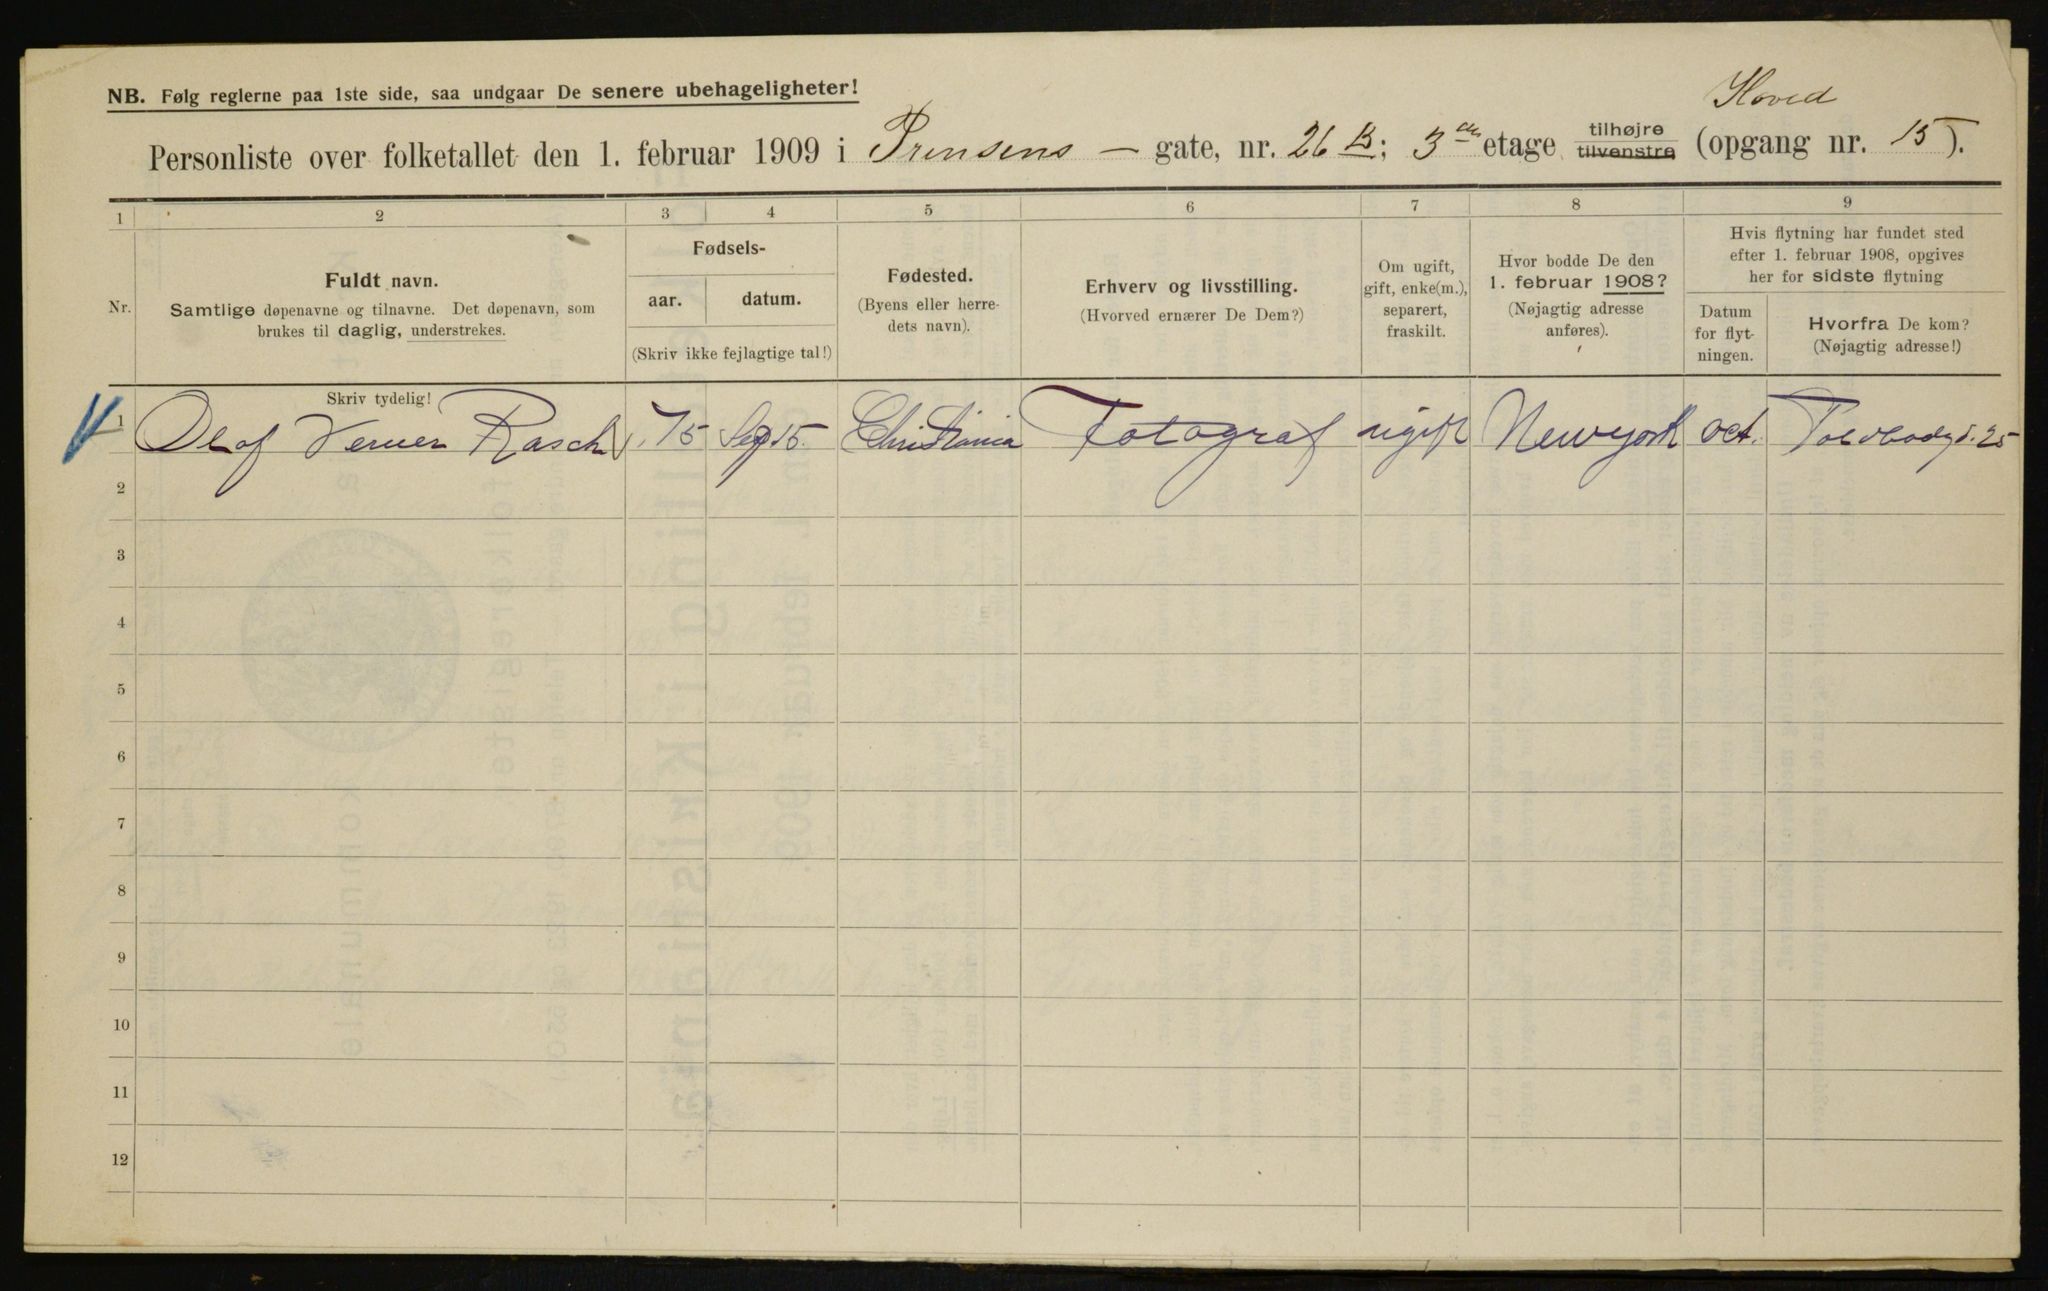 Hoved
NB. Følg reglerne paa 1ste side, saa undgaar De senere ubehageligheter!
Personliste over folketallet den 1. februar 1909 i Prinsens — gate, nr. 26 B; 3 etage tilhøjre tilvenstre (opgang nr. 15).
1 2 3 4 5 6 7 8 9
Nr.
Fuldt navn.
Samtlige døpenavne og tilnavne. Det døpenavn, som
brukes til daglig, understrekes.
Fødsels-
aar. datum.
(Skriv ikke fejlagtige tal!)
Fødested.
(Byens eller herre-
dets navn).
Erhverv og livsstilling.
(Hvorved ernærer De Dem?)
Om ugift,
gift, enke(m.),
separert,
fraskilt.
Hvor bodde De den
1. februar 1908?
(Nøjagtig adresse
anføres).
Hvis flytning har fundet sted
efter 1. februar 1908, opgives
her for sidste flytning
Datum
for flyt-
ningen.
Hvorfra De kom?
(Nøjagtig adresse!)
Skriv tydelig!
1 Olaf Verner Rasch 75 Sep 15. Christiania Fotograf ugift Newyork Oct. Toldbodg. 25
2
3
4
5
6
7
8
9
10
11
12